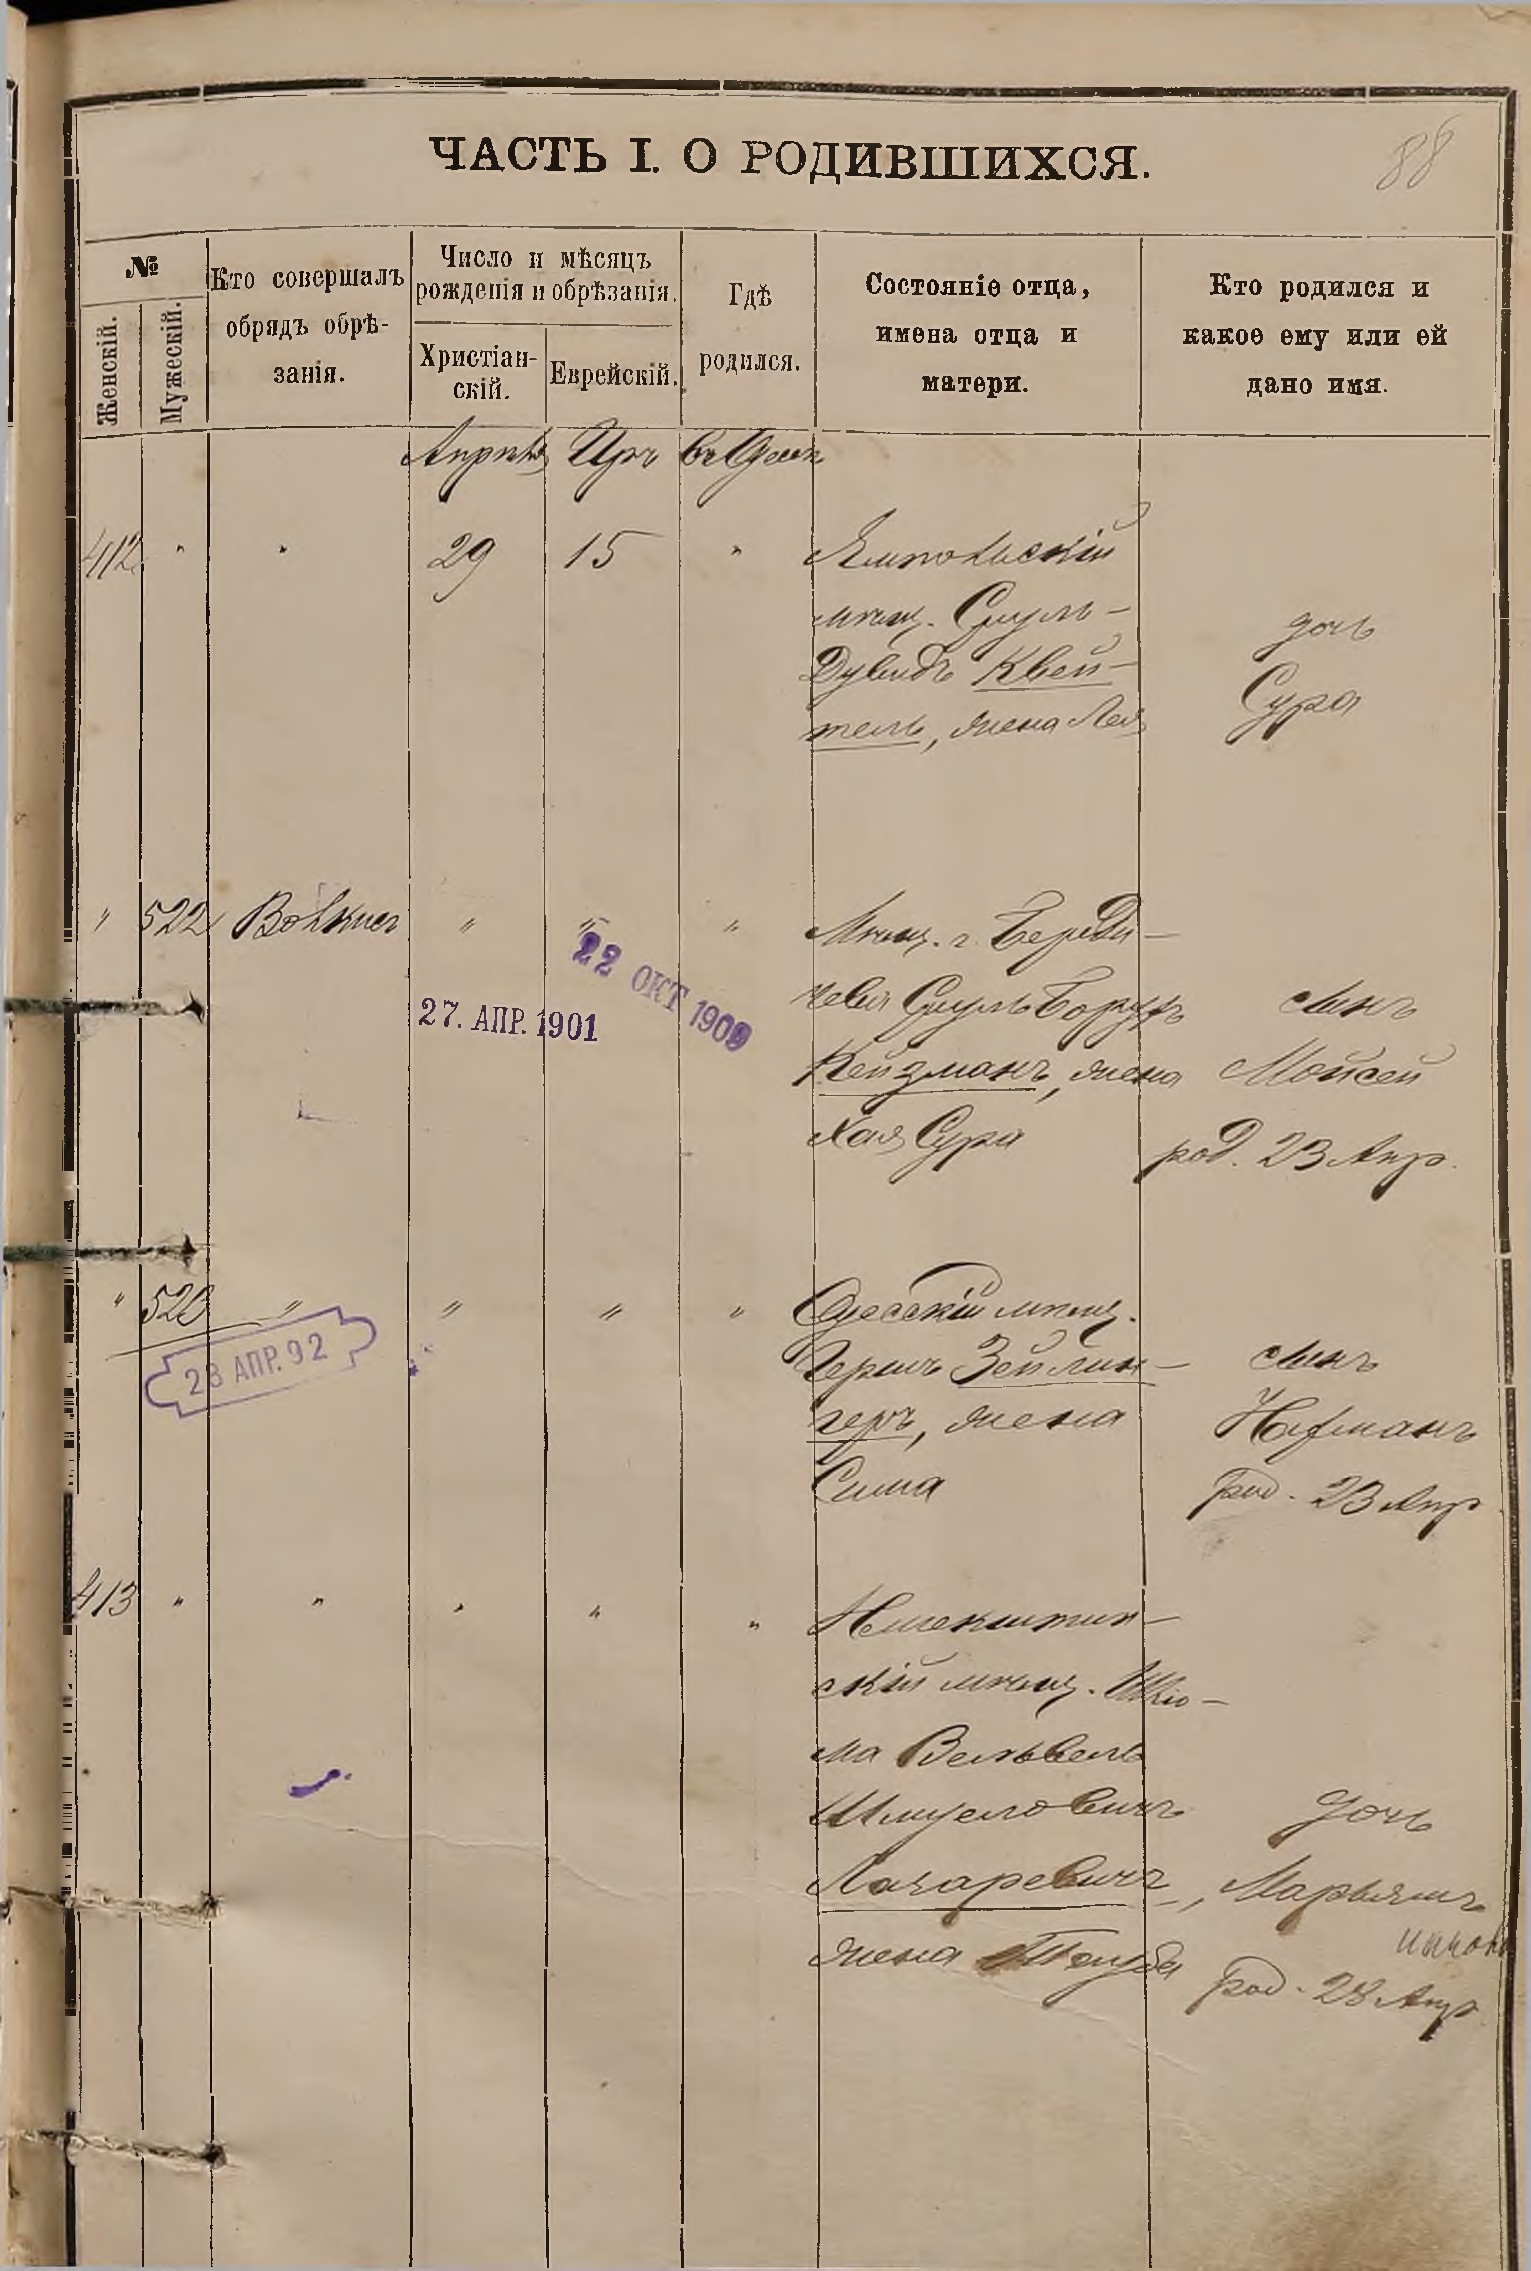 88
ЧАСТЬ I. О РОДИВШИХСЯ.
№
Женскій.
Мужескій.
Кто совершалъ
обрядъ обрѣ-
занія.
Число и мѣсяцъ
рожденія и обрѣзанія.
Христіан-
скій.
Еврейскій.
Гдѣ
родился.
Состояніе отца,
имена отца и
матери.
Кто родился и
какое ему или ей
дано имя.
Апрѣль Іяръ въ Одессѣ
412 " " 29 15 " Ямпольскій
мѣщ. Сруль-
Дувидъ Квей-
тель, жена Лея
дочь
Сура
" 522 " " " Мѣщ. г. Берди-
чева Сруль Борухъ
Кейзманъ, жена
Хая Сура
сынъ
Мойсей
род. 23 Апр.
22 ОКТ 190
27. АПР. 1901
" 523 " " " " Одесскій мѣщ.
Гершъ Зейлин-
геръ, жена
Сима
сынъ
Нафманъ
род. 23 Апр
28 АПР. 92
413 " " " " "
скій мѣщ. Шлю-
ма Вельвель
Шмулевичъ
Лазаревичъ,
жена
дочь
Марьямъ
род. 28 Апр